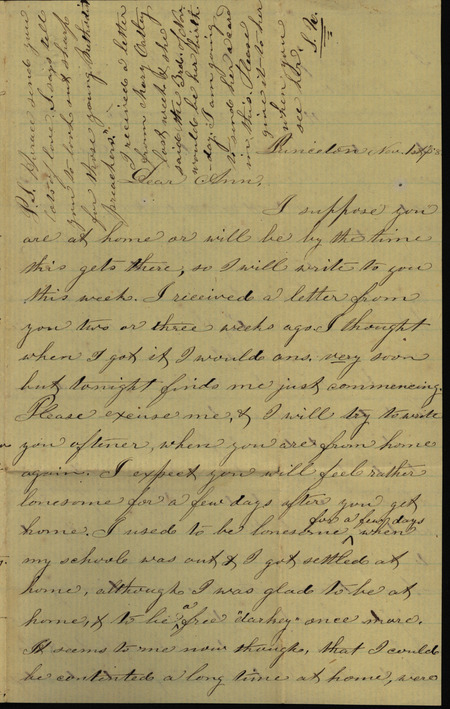 P.S. Horace sends you
lots of love & says tell
you to look out sharp
for those young Methodist
preachers."
I received a letter
from Mary Oatley
last week & she
said the 3rd of Dec
would be her birth
day. I am going
to send her a card
in this. Please
give it to her
when you
see her.
S. N.
Princeton Nov.
Dear Ann.
I suppose you
are at home or will be by the time
this gets there, so I will write to you
this week. I received a letter from
you two or three weeks ago. I thought
when I got it I would ans. very soon
but tonight finds me just commencing.
Please excuse me, & I will try to write
you oftener, when you are from home
again. I expect you will feel rather
lonesome for a few days after you get
home. I used to be lonesome for a few days when
my schools was out & I got settled at
home, although I was glad to be at
home, & to be a free "darkey" once more.
It seems to me now though, that I could
be contented a long time at home, were